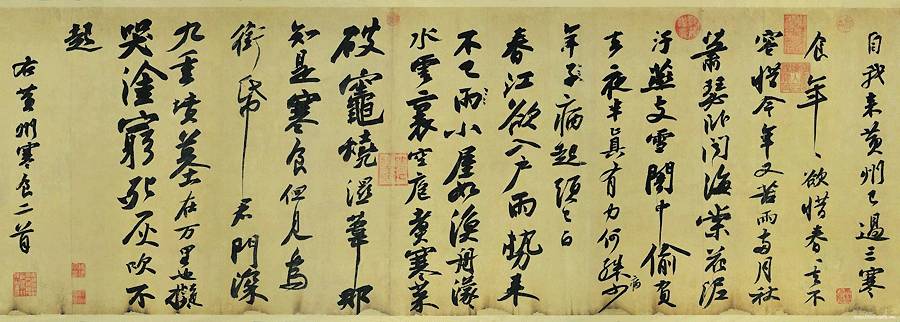 自我来黄州已過三寒
食年〻欲惜春〻去不
容惜今年又苦雨兩月秋
蕭瑟卧聞海棠花泥
汙燕支雪闇中偷負
去夜半真有力何殊病少
年子病起頭已白
春江欲入戶雨勢来
不已雨小屋如漁舟濛〻
水雲裏空庖煮寒菜
破竈燒濕葦那
知是寒食但見烏
銜帋君門深
九重墳墓在万里也擬
哭塗窮死灰吹不
起
右黄州寒食二首